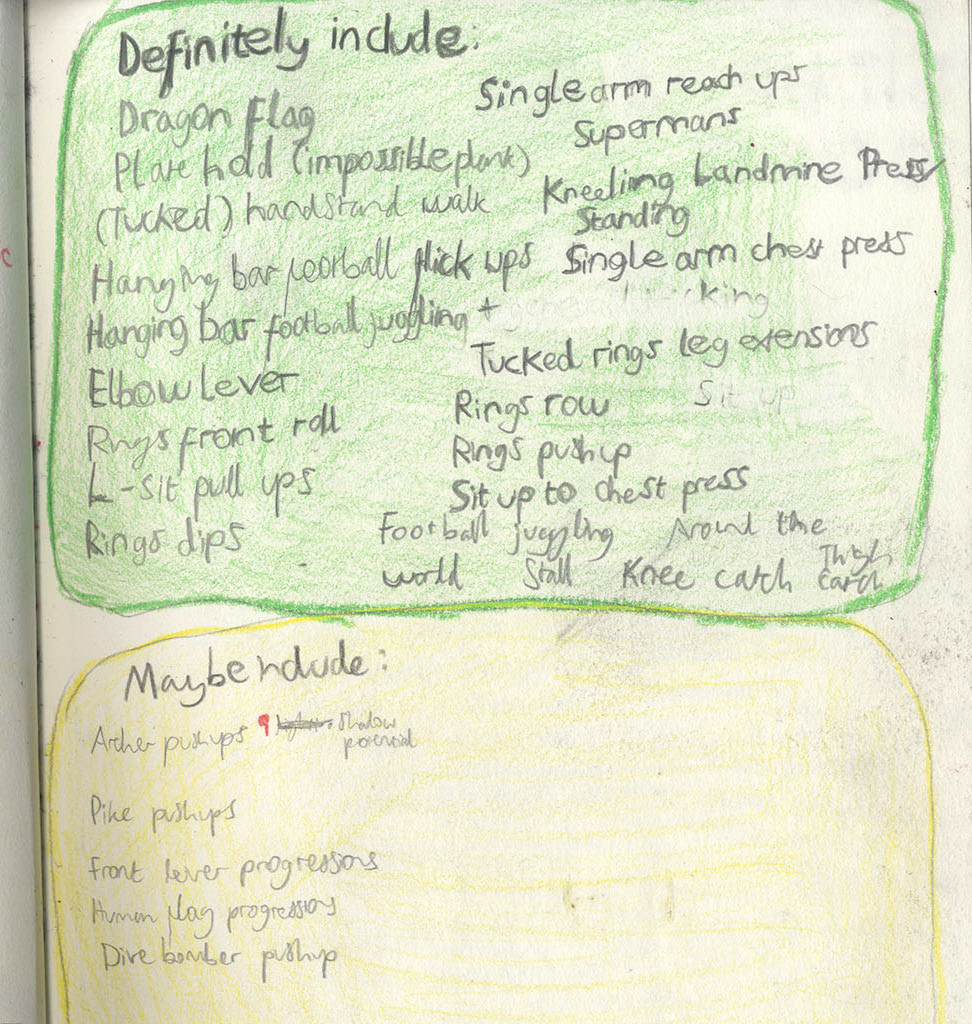 Definitely include:
Dragon Flag
Plate hold (impossible plank)
(Tucked) handstand walk
Hanging bar football flick ups
Hanging bar football juggling +
Elbow Lever
Rings front roll
L-sit pull ups
Rings dips
Single arm reach ups
Supermans
Kneeling Landmine Press/
Standing
Single arm chest press
kicking
Tucked rings leg extensions
Rings row Sit up
Rings push up
Sit up to chest press
Football juggling Around the
world Stall Knee catch Thigh
catch
Maybe include:
Archer pushups Shadow
Pike pushups
Front lever progressions
Human flag progressions
Dive bomber pushup